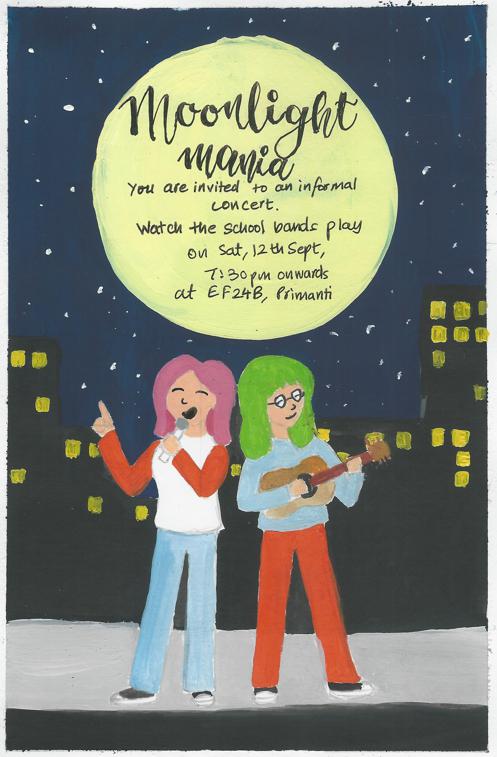 Moonlight
mania
You are invited to an informal
concert.
Watch the school bands play
on Sat, 12th Sept,
7:30 pm onwards
at EF24B, Primanti